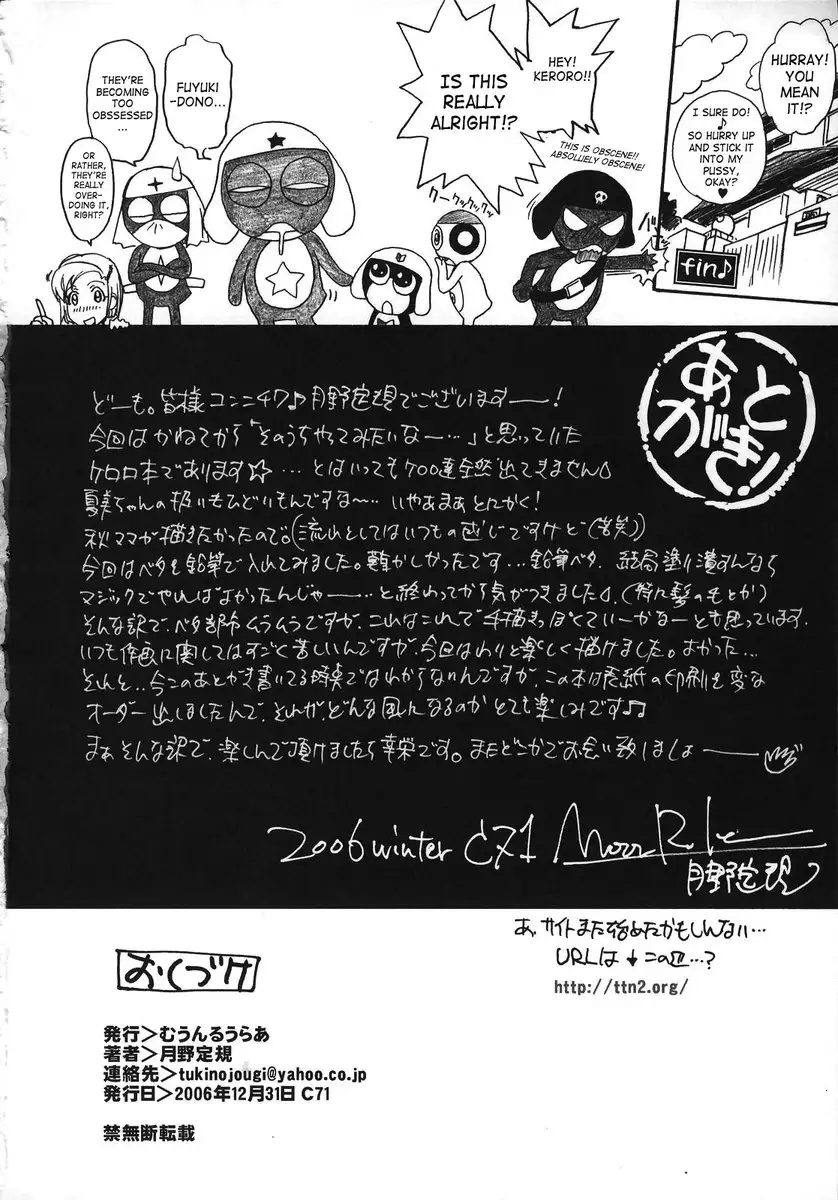 HURRAY!
YOU
MEAN
IT!?
fin♪
HEY!
KERORO!
IS THIS
REALLY
ALRIGHT!?
THIS IS OBSCENE!!
ABSOLUELY OBSCENE!
クークックックッ
FUYUKI
-DONO...
THEY'RE
BECOMING
TOO
OBSSESSED
...
OR
RATHER,
THEY'RE
REALLY
OVER-
DOING IT,
RIGHT?
あとがき!
どーも。皆様コンニチワ♪月野定規でございますーー!
今回はかねてから「そのうちやってみたいなー…」と思っていた
ケロロ本であります☆…とはいってもケロロ達全然出てきません
夏美ちゃんの扱いもひどいもんですな〜…いやあまあとにかく!
秋ママが描きたかったので。(流れとしてはいつもの感じですけど(苦笑))
今回はベタを鉛筆で入れてみました。難かしかったです…鉛筆ベタ。結局塗り潰すんなら
マジックでやればよかったんじゃー…と終わってから気がつきました。(特に髪の毛とか)
そんな訳で、ベタ部ムラムラですが、これはこれで手描きっぽくていーかなーとも思っています。
いつも作画に関してはすごく苦しいんですが、今回はわりと楽しく描けました。よかった…
それと…今このあとがき書いてる時点ではわからないんですが、この本は表紙の印刷を変な
オーダー出しましたんで、それがどんな風になるのかとても楽しみです♪
まぁそんな訳で、楽しんで頂けましたら幸栄です。またどこかでお会い致しましょーー
2006 winter C71
月野定規
あ、サイトまた始めたかもしんない…
URLは↓この辺…?
http://ttn2.org/
おくづけ
発行＞むうんるうらあ
著者＞月野定規
連絡先＞tukinojougi@yahoo.co.jp
発行日＞2006年12月31日 C71
禁無断転載